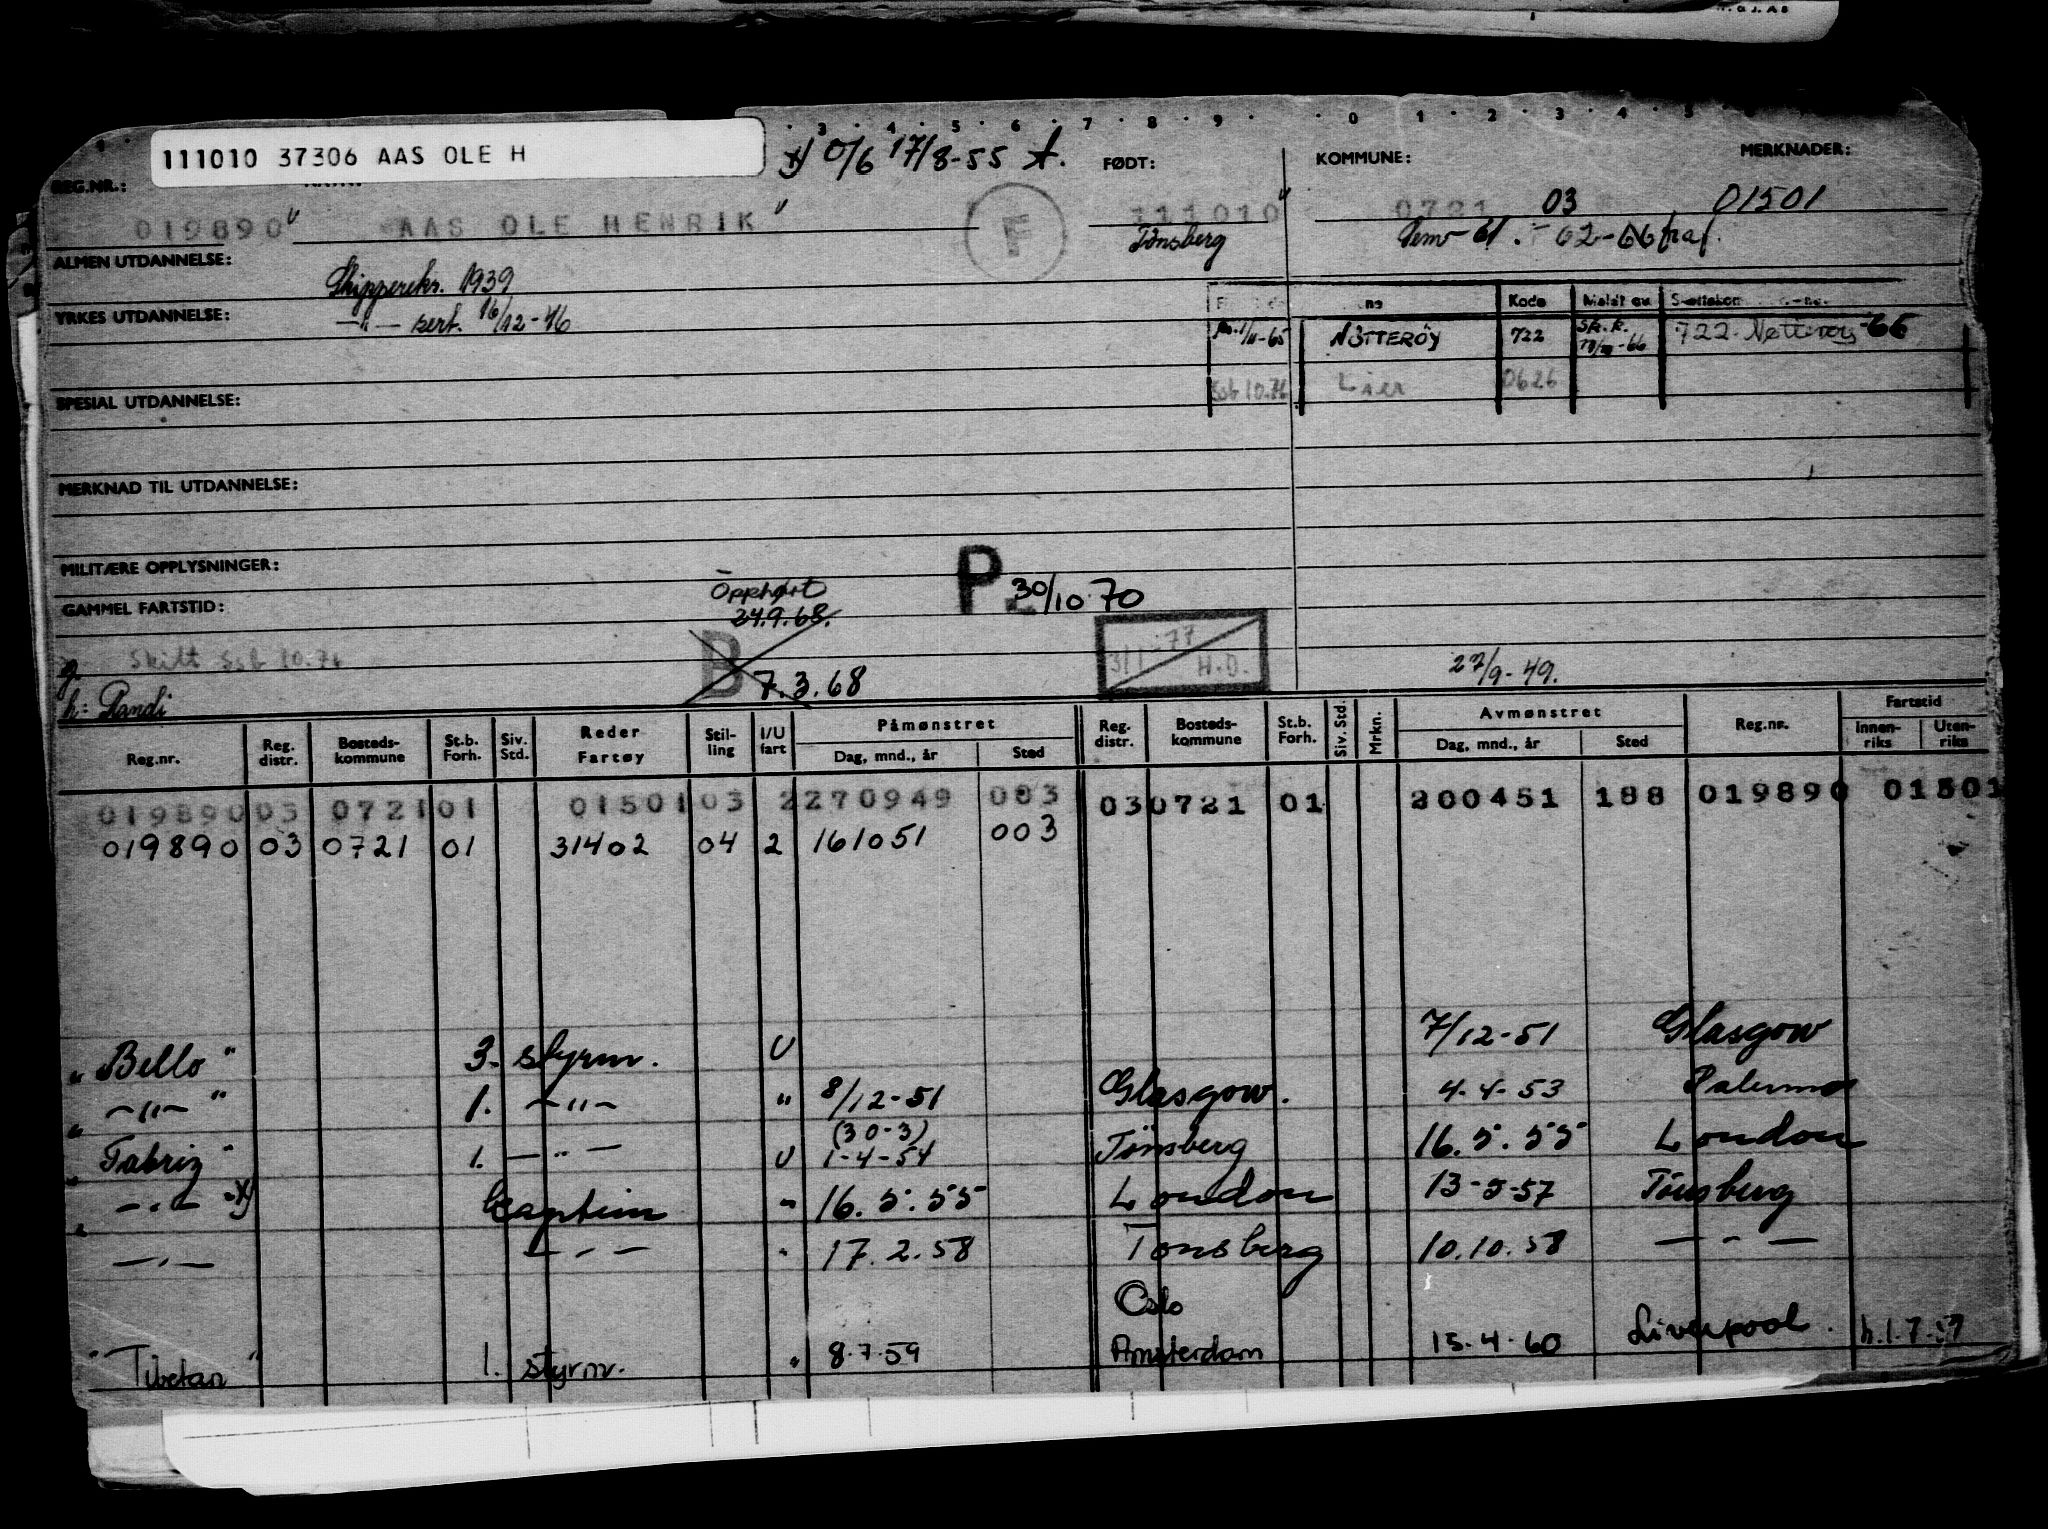 111010 37306 AAS OLE H
0/6 17/8-55 A.
FØDT: KOMMUNE: MERKNADER:
REG.NR.:
019890 AAS OLE HENRIK F 111010 0721 03 01501
Tönsberg Sem-61. 62-66 fraf.
ALMEN UTDANNELSE:
Skippereks. 1939
YRKES UTDANNELSE: —"— sert. 16/12-46
Kode Meldt av
1/11-65 NÖTTERÖY 722 Sk.k. -66 722 Nøtterøy -66
Ssb 10.76 Lier 0626
SPESIAL UTDANNELSE:
MERKNAD TIL UTDANNELSE:
MILITÆRE OPPLYSNINGER:
GAMMEL FARTSTID:
Opphørt 24.9.68. P 30/10 70
B 7.3.68
3/1-77 H.O.
g. Skilt Ssb 10.76
27/9-49.
h: Randi
Reg.nr. Reg. distr. Bosteds-kommune St.b. Forh. Siv. Std. Reder Fartøy Stil-ling I/U fart Påmønstret Dag, mnd., år Sted Reg. distr. Bosteds-kommune St.b. Forh. Siv. Std. Mrkn. Avmønstret Dag, mnd., år Sted Reg.nr. Fartstid Innen-riks Uten-riks
019890 03 0721 01 01501 03 2 270949 003 03 0721 01 200451 188 019890 01501
019890 03 0721 01 31402 04 2 161051 003
"Bello" 3. styrm. U 7/12-51 Glasgow
"—"—" 1. —"— " 8/12-51 Glasgow. 4-4-53 Palermo
(30-3)
"Tabriz" 1. —"— U 1-4-54 Tönsberg 16.5.55 London
"—"—" x) Captein " 16.5.55 London 13-5-57 Tönsberg
—"— —"— " 17.2.58 Tonsberg 10.10.58 —"—
Oslo
"Tibetan" 1. styrm. " 8.7.59 Amsterdam 15.4-60 Liverpool. h.1.7.59